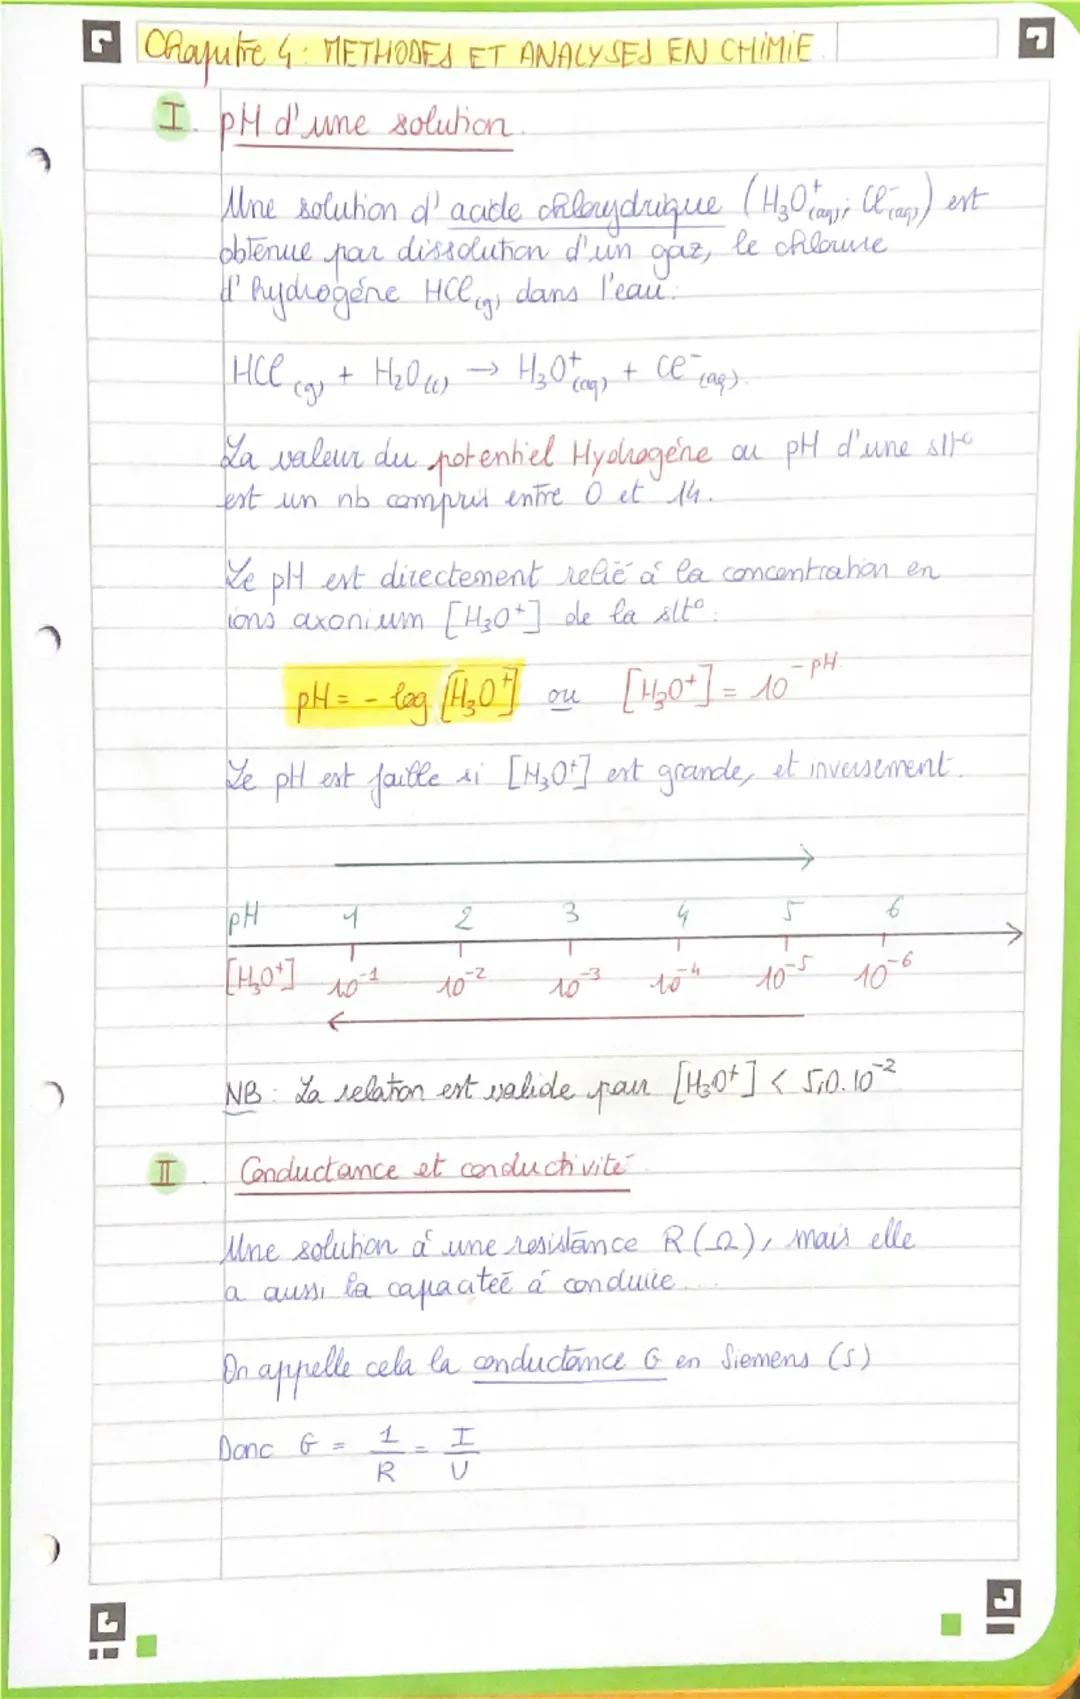 Chapitre 4 : METHODES ET ANALYSES EN CHIMIE.
I. pH d'une solution.
Une solution d'acide chlorydrique (H₃O⁺(aq); Cl⁻(aq)) est
obtenue par dissolution d'un gaz, le chlorure
d'hydrogéne HCl(g), dans l'eau:
HCl(g) + H₂O(l) → H₃O⁺(aq) + Cl⁻(aq).
La valeur du potentiel Hydrogéne ou pH d'une slt°
est un nb compris entre 0 et 14.
Le pH est directement relié à la concentration en
ions oxonium [H₃O⁺] de la slt°:
pH = - log [H₃O⁺] ou [H₃O⁺] = 10⁻ᵖᴴ.
Le pH est faible si [H₃O⁺] est grande, et inversement.
pH 1 2 3 4 5 6
[H₃O⁺] 10⁻¹ 10⁻² 10⁻³ 10⁻⁴ 10⁻⁵ 10⁻⁶
NB : La relation est valide pour [H₃O⁺] < 5,0.10⁻²
II. Conductance et conductivité
Une solution à une resistance R(Ω), mais elle
a aussi la capaciteé à conduire...
On appelle cela la conductance G en Siemens (S)
Donc G = 1/R = I/U